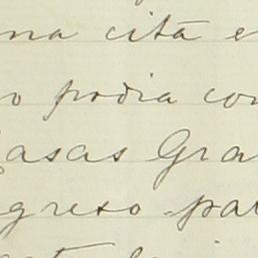 na cita e
o podia con
Casas Gra
greso pa